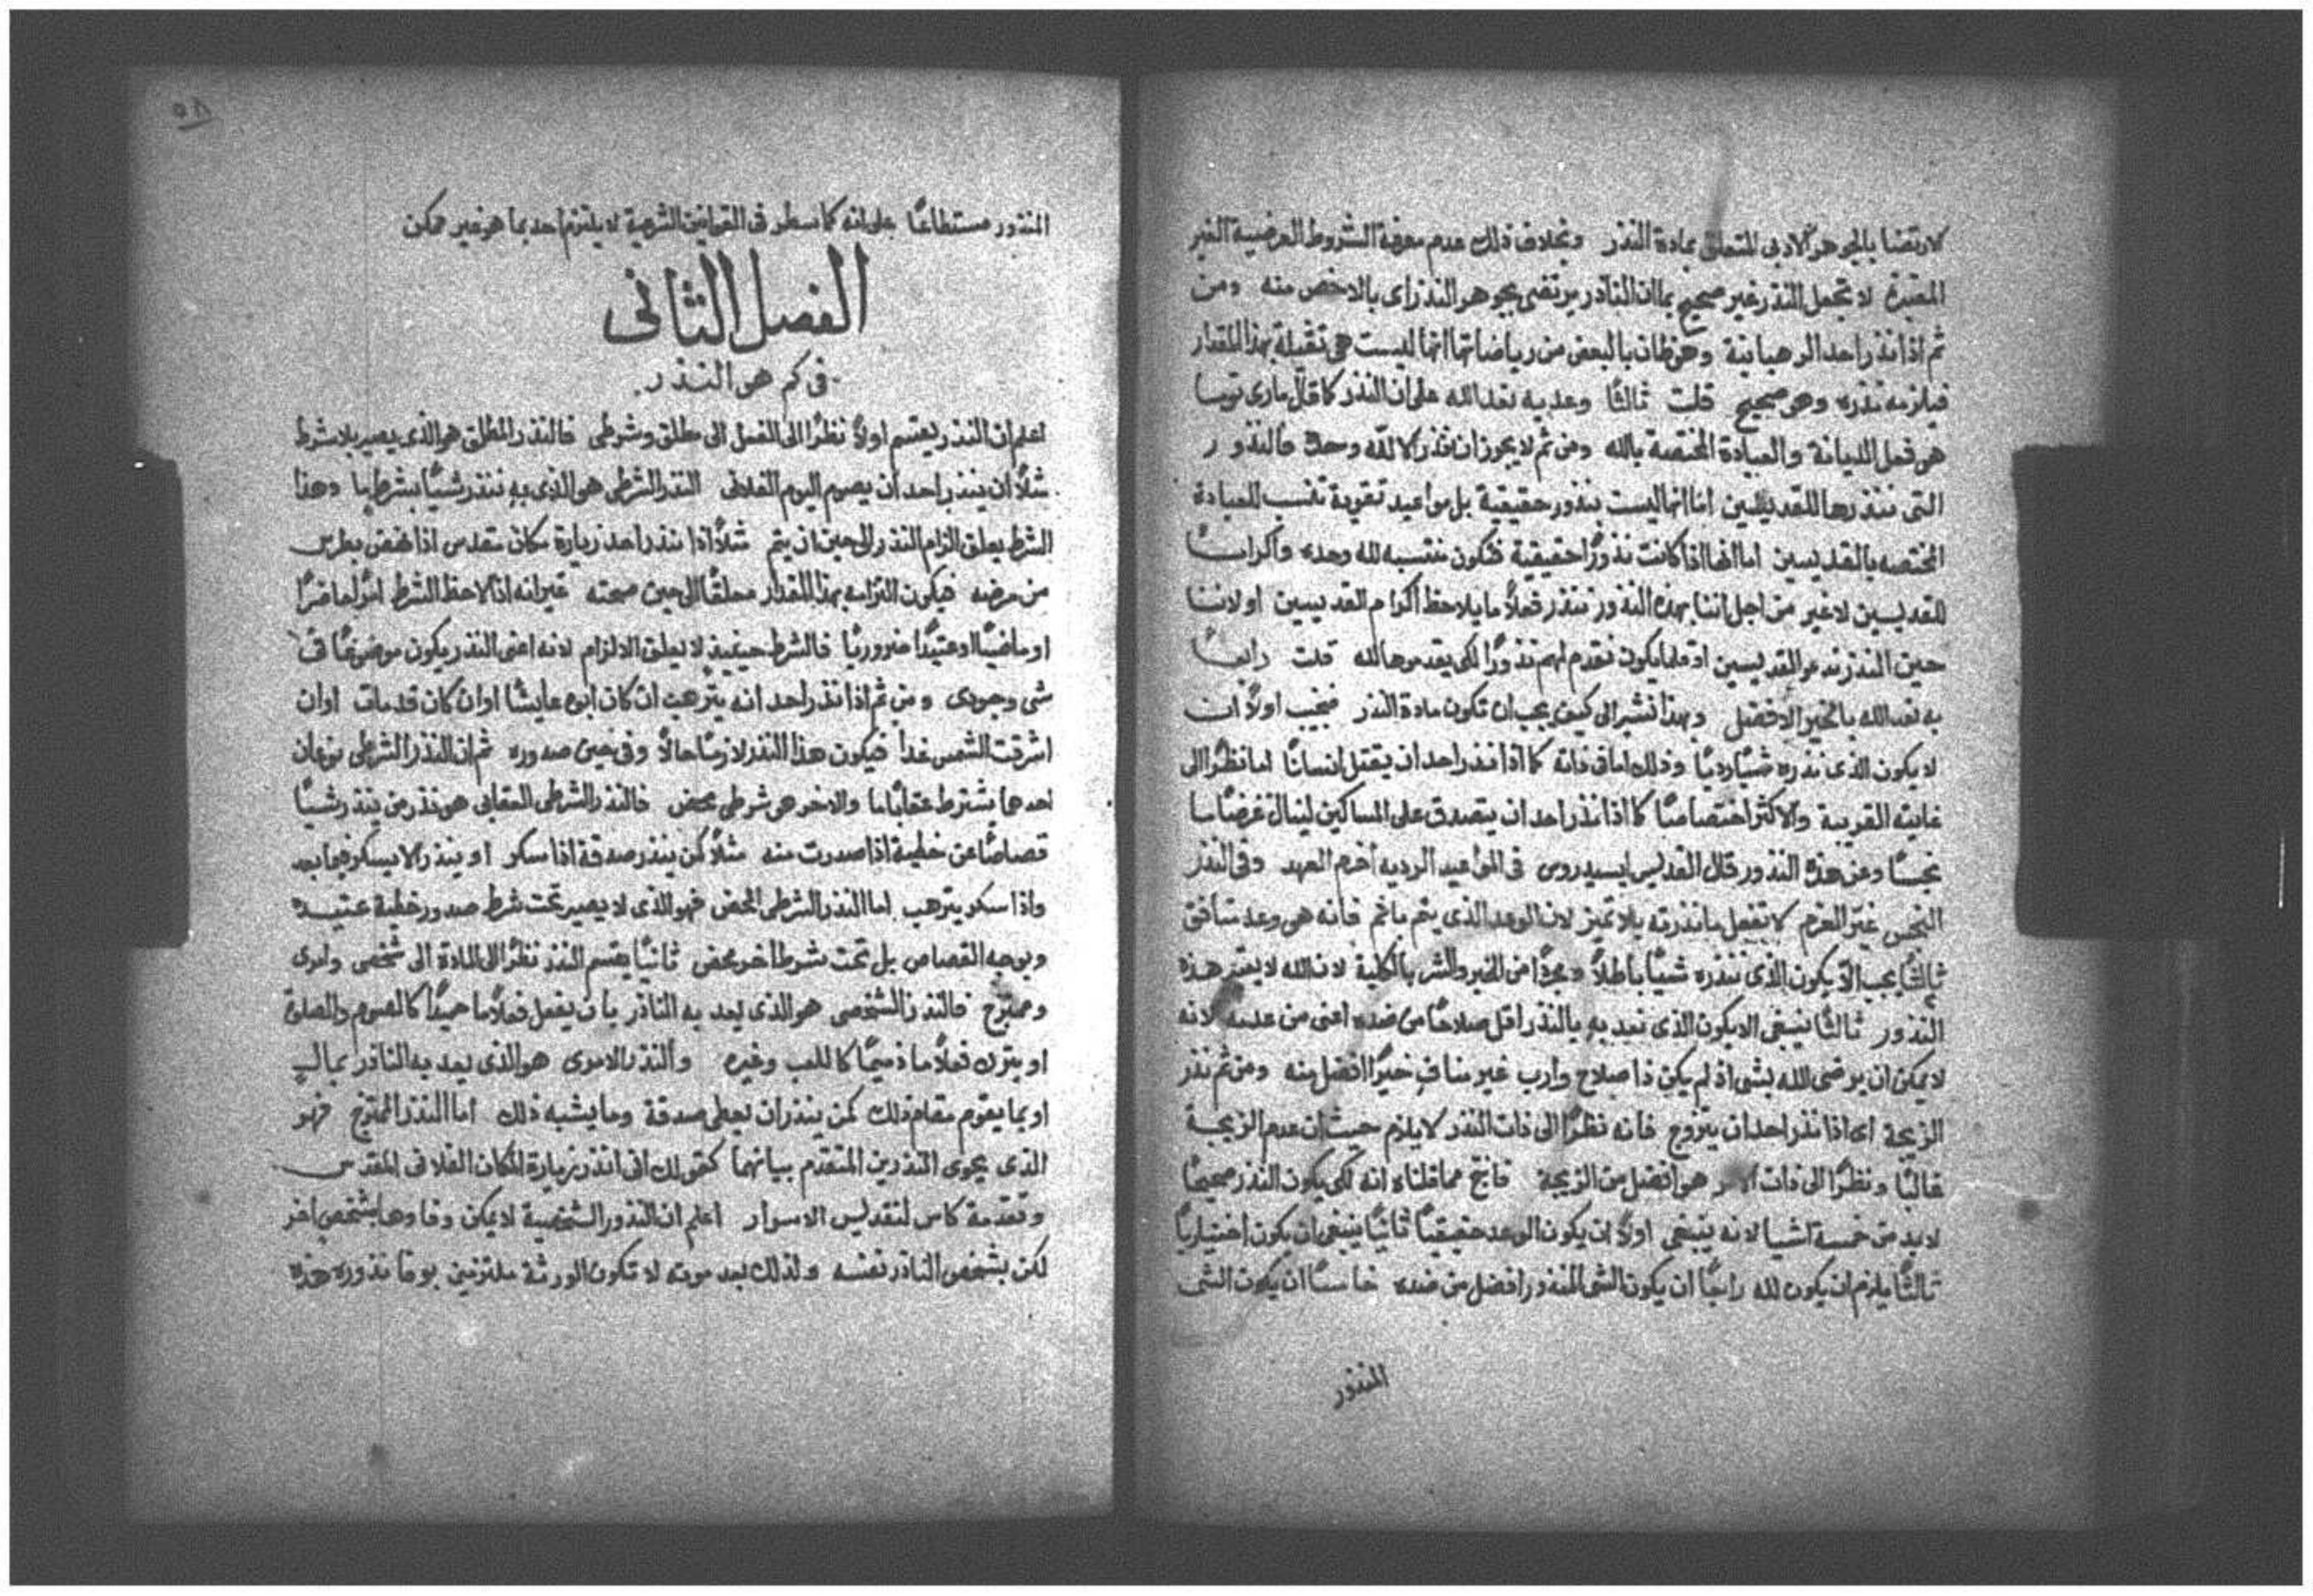 لارتضا بالجوهر الادبى المتعلق بمادة النذر وبخلاف ذلك عدم معرفة الشروط العرضية الغير
المعتبرة لا تجعل النذر غير صحيح بما ان الناذر يرتضى بجوهر النذر اى بالاخص منه ومن
ثم اذا نذر احد الرهبانية وهو ظان بالبعض من رياضاتها انها ليست هى ثقيلة بهذا المقدار
فيلزمه نذره وهو صحيح قلت ثالثا وعد به نعد الله على ان النذر كما قال مارى توما
هو فعل الديانة والعبادة المختصة بالله ومن ثم لا يجوز ان ننذر الا لله وحده فالنذور
التى ننذرها للقديسين اما انها ليست بنذور حقيقية بل مواعيد تقوية تنسب للعبادة
المختصه بالقديسين اما انها اذا كانت نذورًا حقيقية فتكون منتسبه لله وحده واكرامًا
للقديسين لا غير من اجل اننا بهذه النذور ننذر فعلاً ما يلاحظ اكرام القديسين او لاننا
حين النذر ندعو القديسين او قلما يكون نقدم لهم نذورًا لكى يقدموها لله قلت رابعًا
به نعد الله بالخير الافضل وبهذا نشير الى كيف يجب ان تكون مادة النذر فيجب اولاً ان
لا يكون الذى ننذره شيًا رديًا وذلك اما فى ذاته كما اذا نذر احد ان يقتل انسانًا اما نظرًا الى
غايته القريبة والاكثر اختصاصًا كما اذا نذر احد ان يتصدق على المساكين لينال غرضًا ما
نجسًا وعن هذه النذور قال القديس ايسيدروس فى المواعيد الرديه اخرم العهد وفى النذر
النجس غيّر العزم لا تفعل ما نذرته بلا تميز لان الوعد الذى يتم باثم فانه هو وعد منافق
ثالثًا يجب الّا يكون الذى ننذره شيًا باطلاً ومجردًا من الخير والشر بالكلية لان الله لا يعتبر هذه
النذور ثالثًا ينبغى الا يكون الذى نعد به بالنذر اقل صلاحًا من ضده اعنى من عدمه لانه
لا يمكن ان يرضى الله بشى اذ لم يكن ذا صلاح وارب غير مناف خيرًا افضل منه ومن ثم نذر
الزيجة اى اذا نذر احد ان يتزوج فانه نظرًا الى ذات النذر لا يلزم حيث ان عدم الزيجة
غالبًا ونظرًا الى ذات الامر هو افضل من الزيجة فانتج مما قلناه انه لكى يكون النذر صحيحًا
لابد من خمسة اشيا لانه ينبغى اولاً ان يكون الوعد حقيقيًا ثانيًا ينبغى ان يكون اختياريًا
ثالثًا يلزم ان يكون لله رابعًا ان يكون الشى المنذور افضل من ضده خامسًا ان يكون الشى
المنذور
٥٨
المنذور مستطاعًا على انه كما سطر فى القوانين الشرعية لا يلتزم احد بما هو غير ممكن
الفصل الثانى
فى كم هو النذر
اعلم ان النذر يقسم اولاً نظرًا الى الفعل الى مطلق وشرطى فالنذر المطلق هو الذى يصير بلا شرط
مثلاً ان ينذر احد ان يصوم اليوم الفلانى النذر الشرطى هو الذى به ننذر شيًا بشرط ما وهذا
الشرط يعلق الزام النذر الى حين ان يتم مثلاً اذا نذر احد زيارة مكان مقدس اذا نهض بطرس
من مرضه فيكون التزامه بهذا المقدار معلقًا الى حين صحته غير انه اذا لاحظ الشرط امرًا حاضرًا
او ماضيًا او عتيدًا ضروريًا فالشرط حينيذٍ لا يعلق الالزام لانه اعنى النذر يكون موضوعًا فى
شى وجودى ومن ثم اذا نذر احد انه يترهب ان كان ابوه عايشًا او ان كان قد مات او ان
اشرقت الشمس غدًا فيكون هذا النذر لازمًا حالاً وفى حين صدوره ثم ان النذر الشرطى نوعان
احدها يشترط عقابًا ما والاخر هى شرطى محض فالنذر الشرطى العقابى هو نذر من ينذر شيًا
قصاصًا عن خطية اذا صدرت منه مثلاً كمن ينذر صدقة اذا سكر او ينذر الا يسكر فيما بعد
واذا سكر يترهب اما النذر الشرطى المحض فهو الذى لا يصير تحت شرط صدور خطية عتيده
وبوجه القصاص بل تحت شرط اخر محض ثانيًا يقسم النذر نظرًا الى المادة الى شخصى وامرى
وممتزج فالنذر الشخصى هو الذى يعد به الناذر بان يفعل فعلاً ما حميدًا كالصوم والصلوة
او يترك فعلاً ما ذميمًا كاللعب وغيره والنذر الامرى هو الذى يعد به الناذر بمالٍ
او بما يقوم مقام ذلك كمن ينذر ان يعطى صدقة وما يشبه ذلك اما النذر الممتزج فهو
الذى يحوى النذرين المتقدم بيانهما كقولك انى انذر زيارة المكان الفلانى المقدس
وتقدمة كاس لتقديس الاسرار اعلم ان النذور الشخصية لا يمكن وفاوها بشخص اخر
لكن بشخص الناذر نفسه ولذلك بعد موته لا تكون الورثة ملتزمين بوفا نذوره هذه